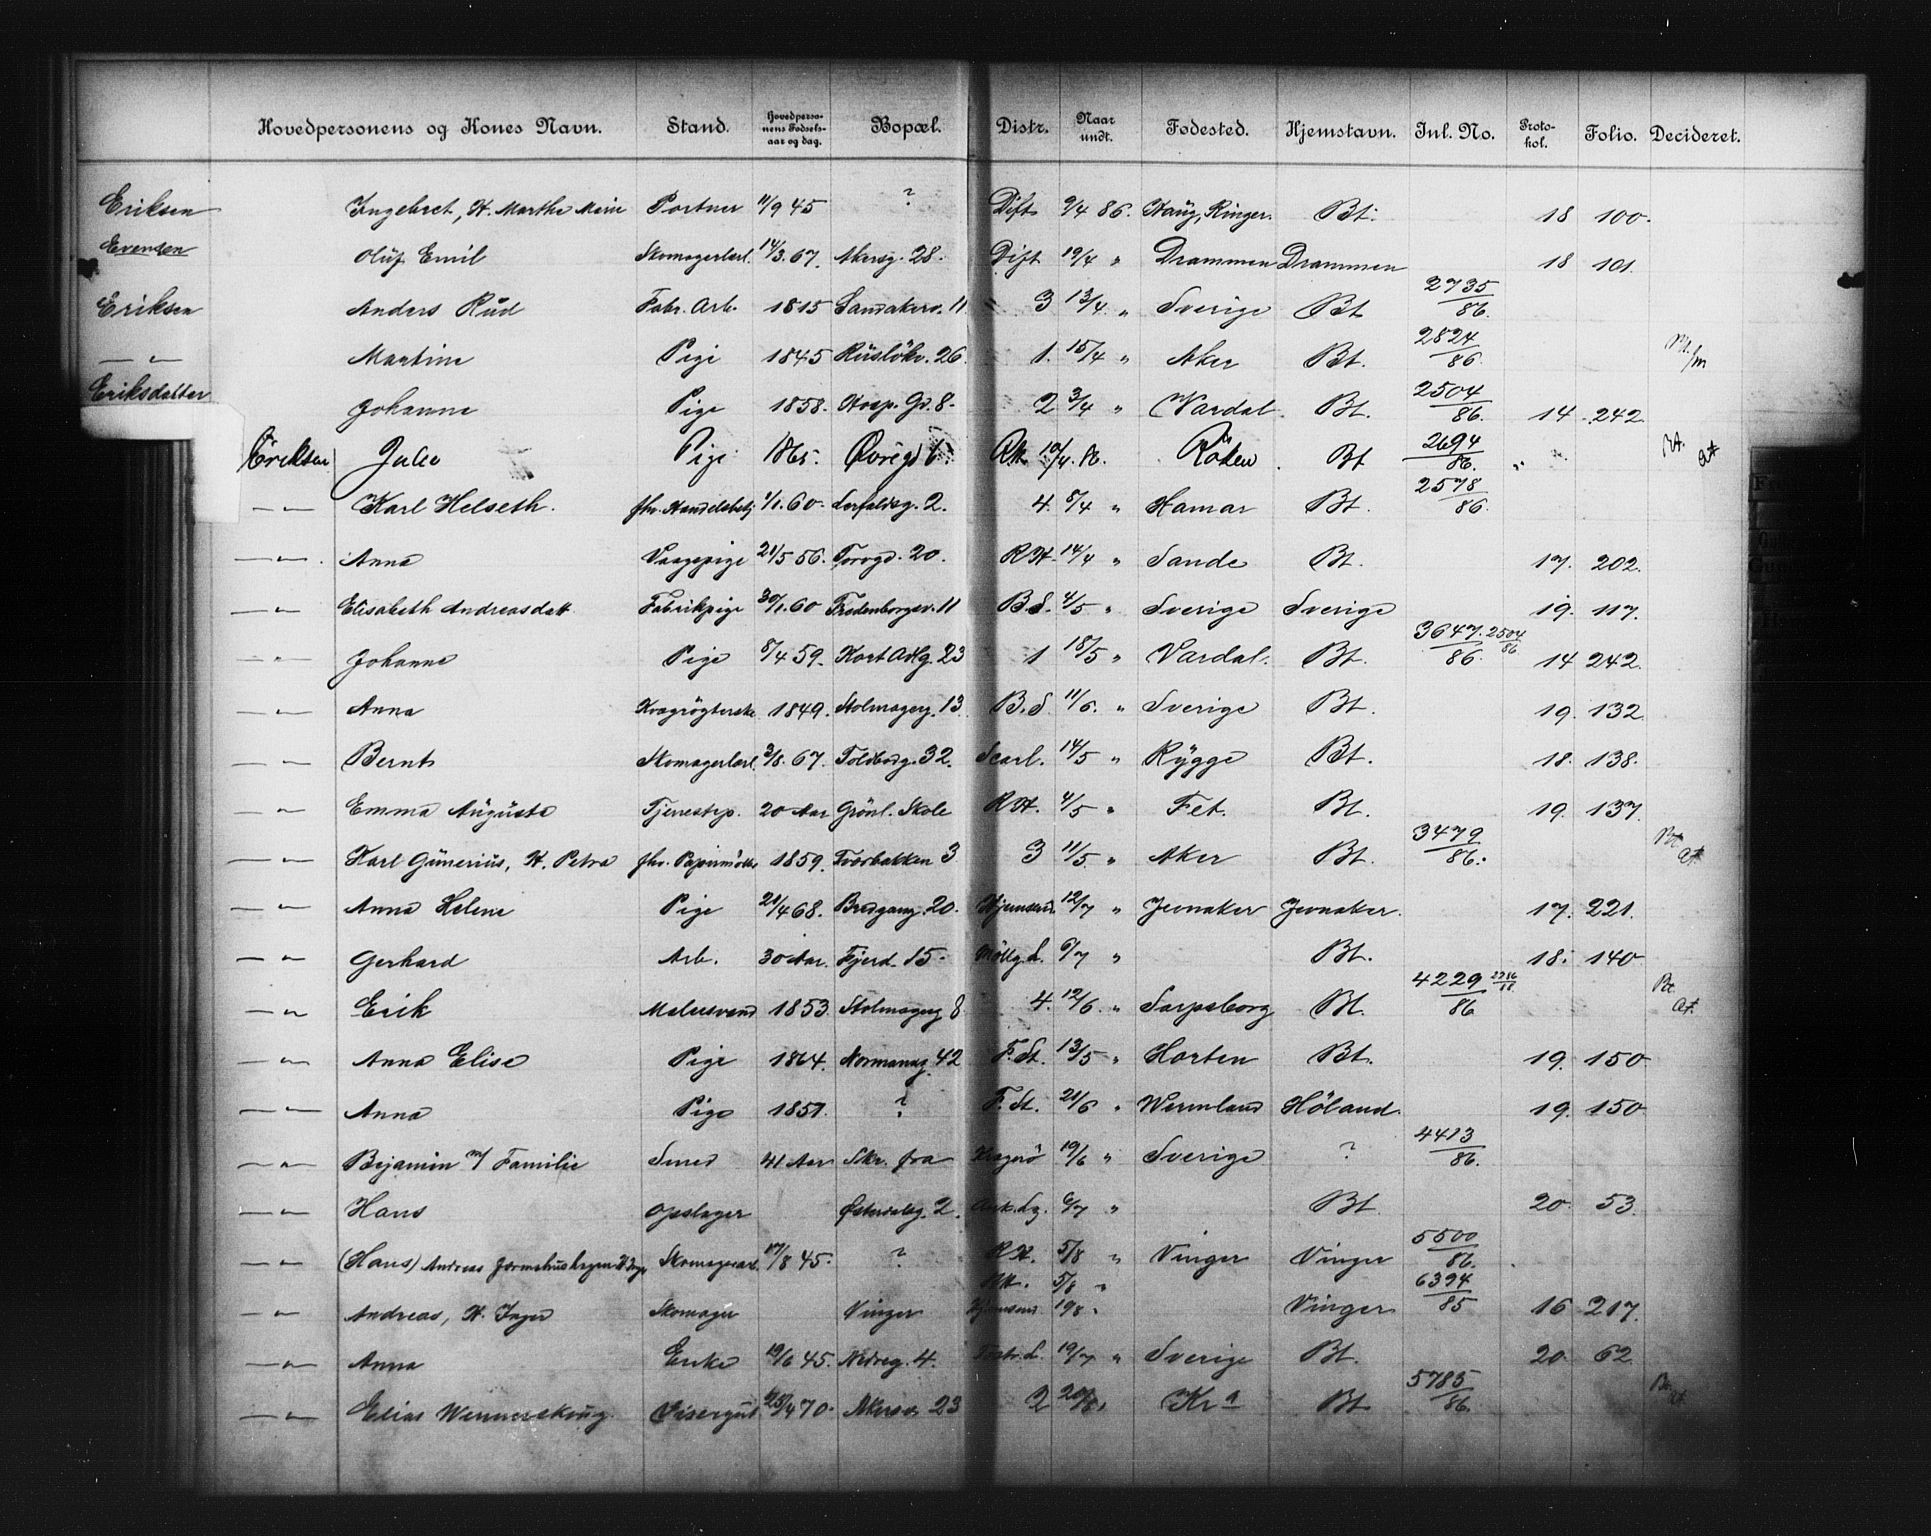 Hovedpersonens og Kones Navn. Stand. Hovedpersonens Fødselsaar og dag. Bopæl. Distr. Naar undt. Fødested. Hjemstavn. Inl. No. Protokol. Folio. Decideret.
Eriksen Ingebret, H. Marthe Marie Portner 11/9 45 ? Dift 9/4 86. Haug, Ringer. Bt. 18 100.
Evensen Oluf Emil Skomagerlærl. 14/3. 67. Akersg. 28. Dift 19/4 " Drammen Drammen 18 101
Eriksen Anders Rud Fabr. Arb. 1815 Sandakerv. 11 3 13/4 " Sverige Bt 2735/86.
— " — Martine Pige 1845 Rusløkv. 26. 1. 15/4 " Aker Bt. 2824/86.
Eriksdatter Johanne Pige 1858. Hosp. Gd. 8. 2 3/4 " Vardal. Bt. 2504/86. 14 242.
Eriksen Julie Pige 1865. Øvregd 6. RH 10/4. 86. Röken Bt 2694/86. Bt. at
— " — Karl Helseth. fhv. Handelsbetj 1/1. 60. Lerfaldsg. 2. 4. 5/4 " Hamar Bt. 2578/86.
— " — Anna Vaagepige 21/5 56. Torvgd. 20. R.H. 14/4 " Sande Bt. 17. 202.
— " — Elisabeth Andreasdatt Fabrikpige 30/1. 60 Fredenborgsv. 11 B.S. 4/5 " Sverige Sverige 19. 117.
— " — Johanne Pige 8/4 59. Kort Adlg. 23 1 18/5 " Vardal. Bt. 3647/86. 2504/86 14 242.
— " — Anna Kvægrøgterske 1849. Stolmagerg. 13. B.S 11/6. " Sverige Bt. 19. 132.
— " — Bernt Skomagerlærl. 3/8. 67. Toldbodg. 32. Scarl. 14/5 " Rygge Bt. 18. 138.
— " — Emma Augusta Tjenestep. 20 Aar Grönl. Skole R.H. 4/5 " Fet. Bt. 19. 137.
— " — Karl Gunerius, H. Petra fhv. 1859. Tværbakken 3 3 11/5 " Aker Bt. 3479/86. Bt. at.
— " — Anna Helene Pige 21/4 68. Bredgang. 20. 12/7 " Jevnaker Jevnaker. 17. 221.
— " — Gerhard Arb. 30 Aar. Fjerd. 15. Møllg. S. 6/7 " Bt. 18. 140
— " — Erik Malersvend 1853. Stolmagerg 8 4. 12/6. " Sarpsborg Bt. 4229/86 Bt. at.
— " — Anna Elise Pige 1864. Normannsg. 42 F. St. 13/5 " Horten Bt. 19. 150
— " — Anna Pige 1851. ? F. St. 21/6 " Wermland Höland. 19. 150
— " — Bejamin m/ Familie Smed 41 Aar Skr. fra Kragerö 19/6 " Sverige ? 4413/86.
— " — Hans Opslager Østerdalsg. 2. 6/7 " Bt. 20. 53.
— " — (Hans) Andreas Skomagerarb. 17/8 45. ? R.H. 5/8 " Vinger Vinger 5500/86.
5/8 " 6394/85
— " — Andreas, H. Inger Skomager Vinger Vinger 16 217.
— " — Anna Enke 19/6 45. Nedreg. 4. 19/7 " Sverige Bt. 20. 62
— " — Elias Wennerskoug. Visergut 25/4 70. Akersv. 23 2 20/8. Kr a Bt 5785/86. Bt. at